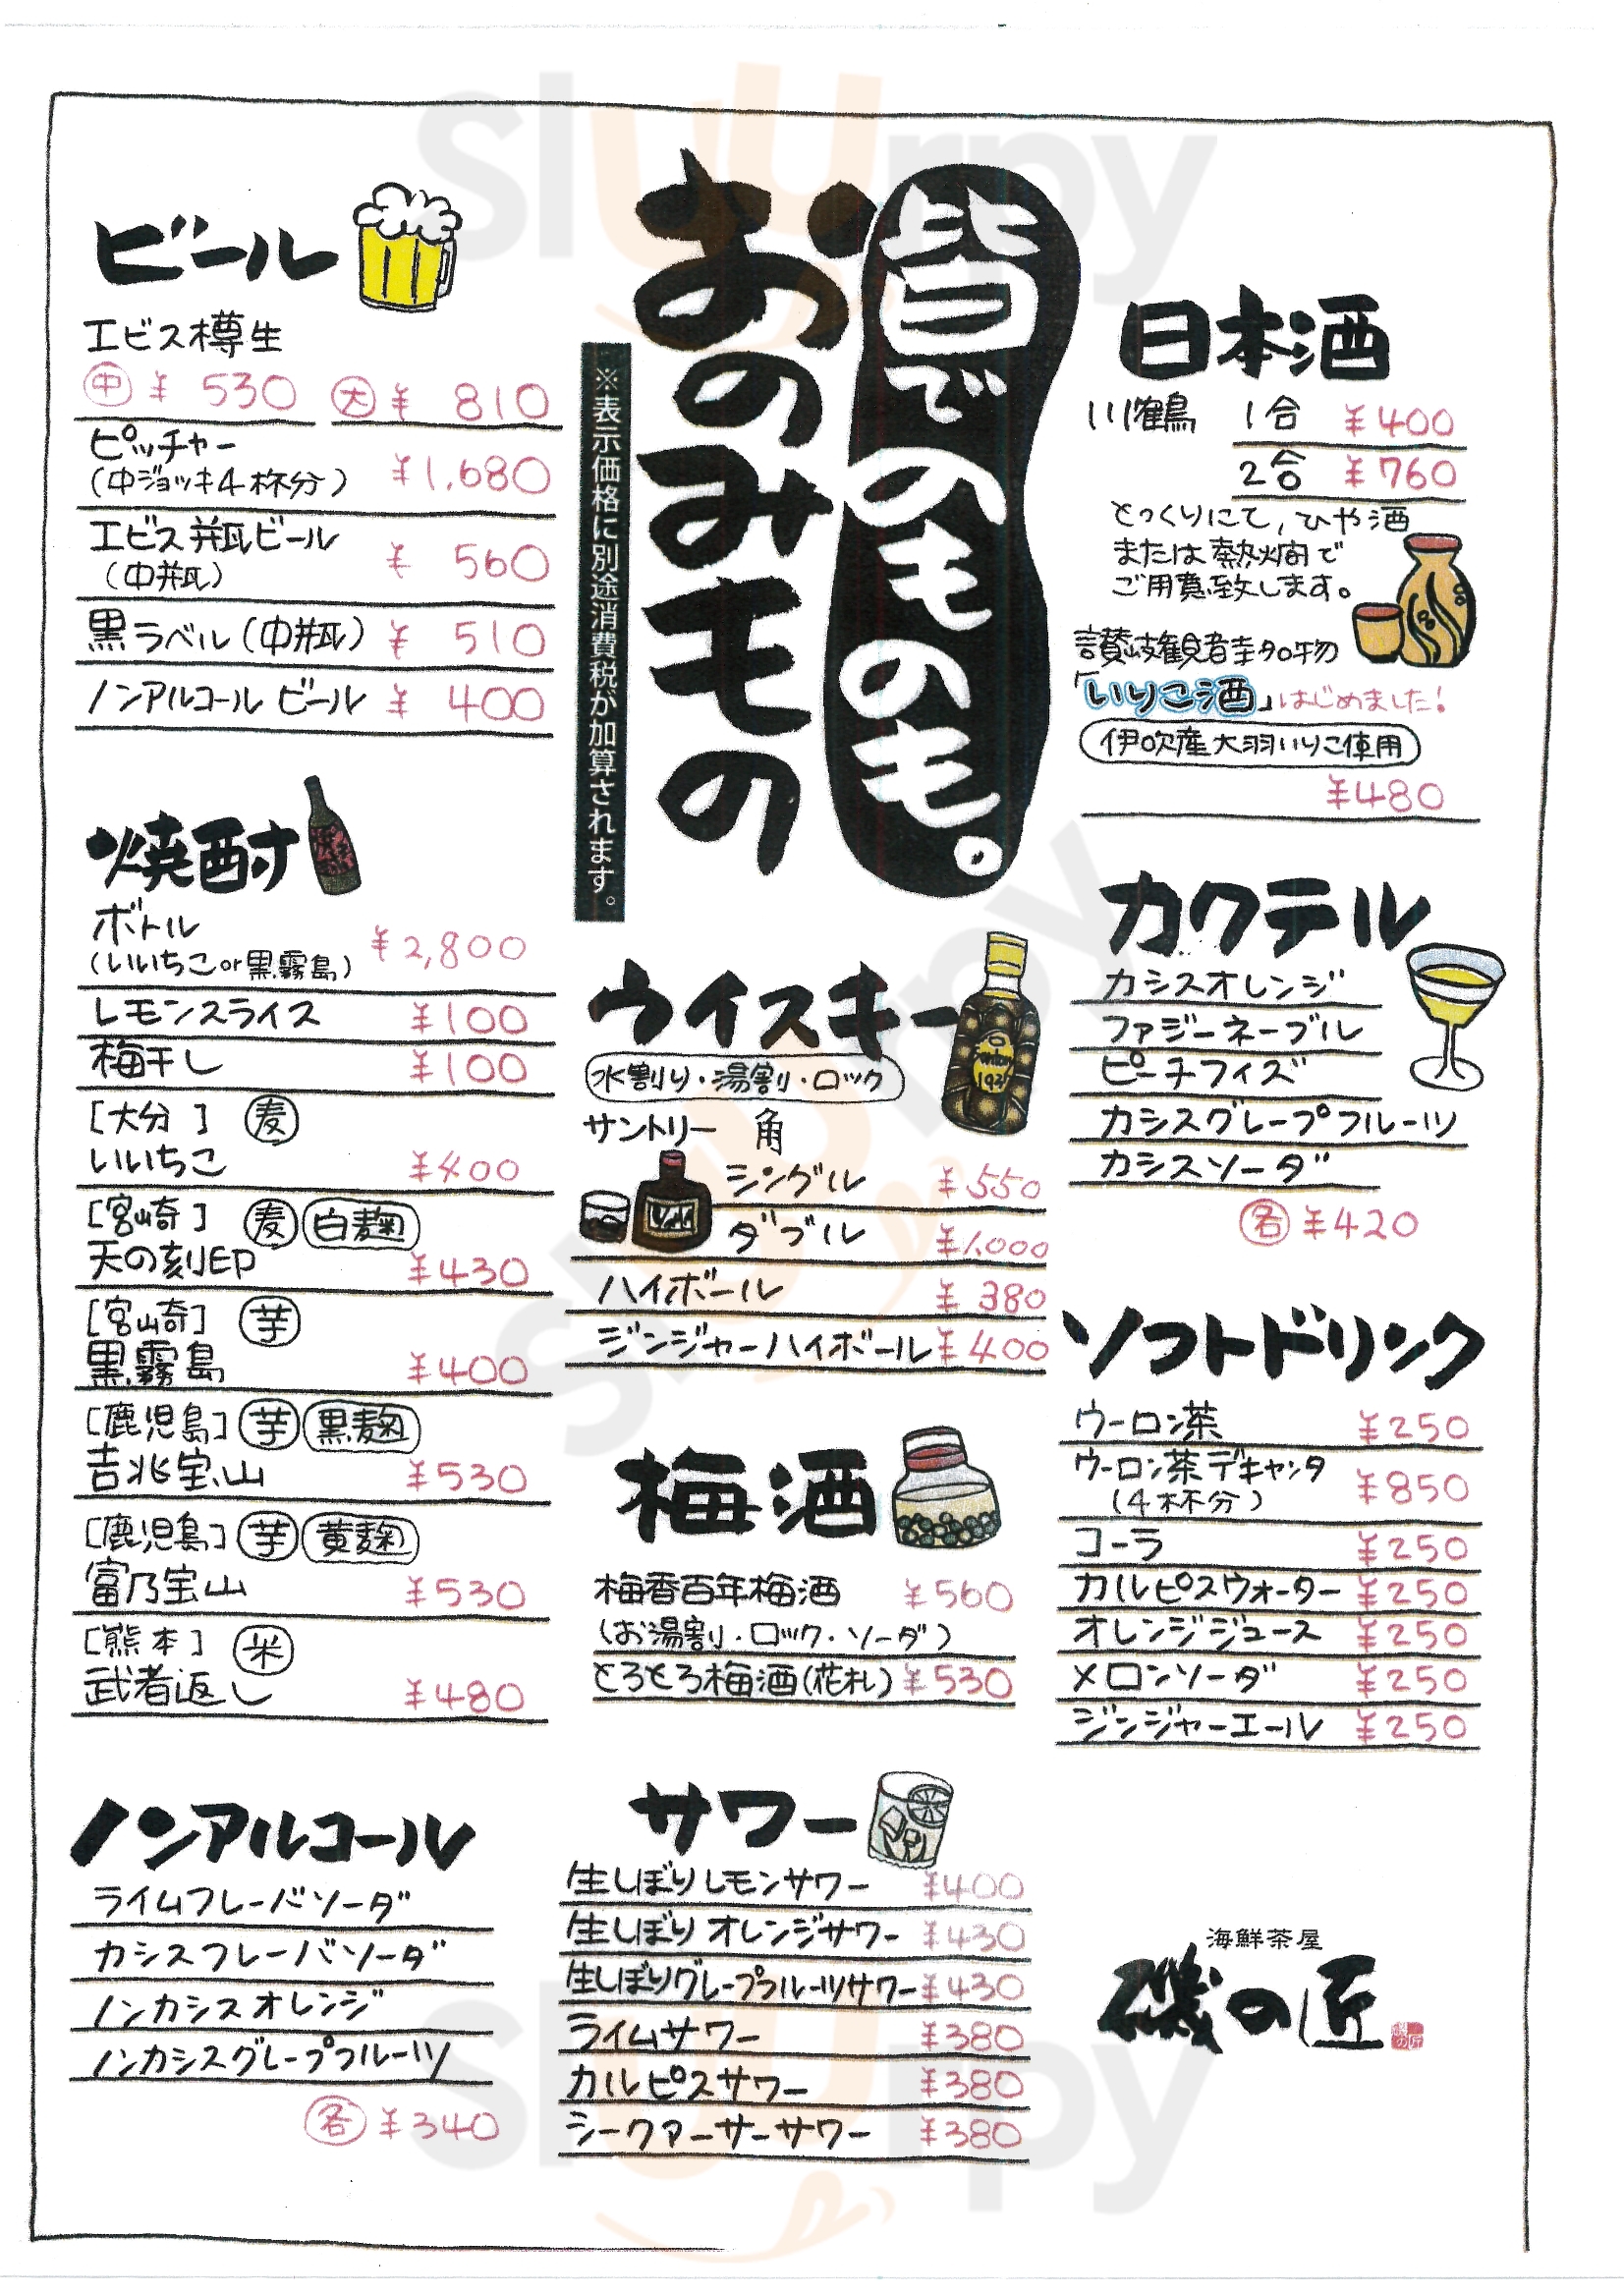 皆でのモのモ。
おのみモの
※表示価格に別途消費税が加算されます。
ビール
エビス樽生
中 ¥ 530 大 ¥ 810
ピッチャー
(中ジョッキ4杯分) ¥1,680
エビス瓶ビール
(中瓶) ¥ 560
黒ラベル(中瓶) ¥ 510
ノンアルコールビール ¥ 400
焼酎
ボトル
(いいちこor黒霧島) ¥2,800
レモンスライス ¥100
梅干し ¥100
[大分] 麦
いいちこ ¥400
[宮崎] 麦 白麹
天の刻印 ¥430
[宮崎] 芋
黒霧島 ¥400
[鹿児島] 芋 黒麹
吉兆宝山 ¥530
[鹿児島] 芋 黄麹
富乃宝山 ¥530
[熊本] 米
武者返し ¥480
ノンアルコール
ライムフレーバソーダ
カシスフレーバソーダ
ノンカシスオレンジ
ノンカシスグレープフルーツ
各 ¥340
ウイスキー
水割り・湯割・ロック
サントリー 角
シングル ¥550
ダブル ¥1,000
ハイボール ¥380
ジンジャーハイボール ¥400
梅酒
梅香百年梅酒 ¥560
(お湯割・ロック・ソーダ)
とろとろ梅酒(花札) ¥530
サワー
生しぼりレモンサワー ¥400
生しぼりオレンジサワー ¥430
生しぼりグレープフルーツサワー ¥430
ライムサワー ¥380
カルピスサワー ¥380
シークァーサーサワー ¥380
日本酒
川鶴 1合 ¥400
2合 ¥760
とっくりにて,ひや酒
または熱燗で
ご用意致します。
讃岐観音寺名物
「いりこ酒」はじめました!
伊吹産大羽いりこ使用
¥480
カクテル
カシスオレンジ
ファジーネーブル
ピーチフィズ
カシスグレープフルーツ
カシスソーダ
各 ¥420
ソフトドリンク
ウーロン茶 ¥250
ウーロン茶デキャンタ
(4杯分) ¥850
コーラ ¥250
カルピスウォーター ¥250
オレンジジュース ¥250
メロンソーダ ¥250
ジンジャーエール ¥250
海鮮茶屋
磯の匠
sluurpy
sluurpy
sluurpy